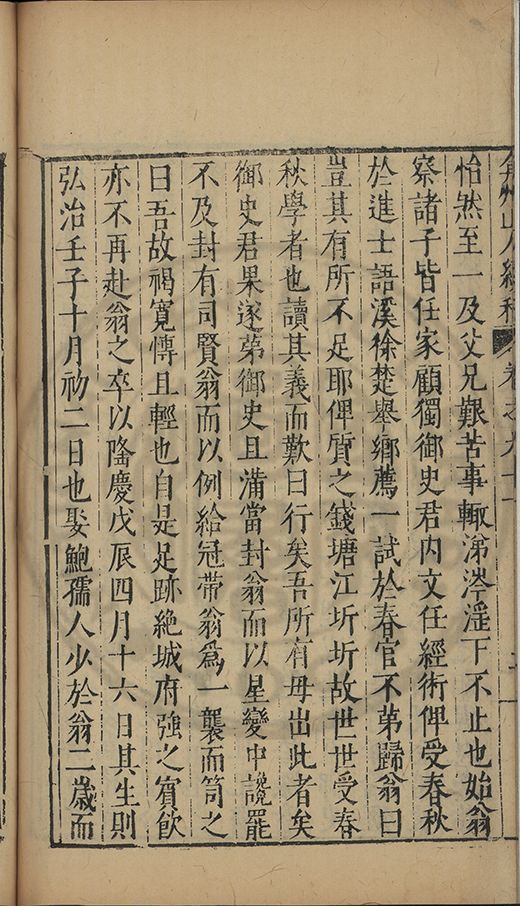 弇州山人續稿 卷之九十一
怡然至一及父兄艱苦事輙涕涔淫下不止也始翁
察諸子皆任家顧獨御史君内文任經術俾受春秋
於進士語溪徐楚舉鄉薦一試於春官不第歸翁曰
豈其有所不足耶俾質之錢塘江圻圻故世世受春
秋學者也讀其義而歎曰行矣吾所有毋出此者矣
御史君果遂第御史且滿當封翁而以星變中讒罷
不及封有司賢翁而以例給冠帶翁爲一襲而笥之
曰吾故褐寬博且輕也自是足跡絶城府強之賓飲
亦不再赴翁之卒以隆慶戊辰四月十六日其生則
弘治壬子十月初二日也娶鮑孺人少於翁二歳而